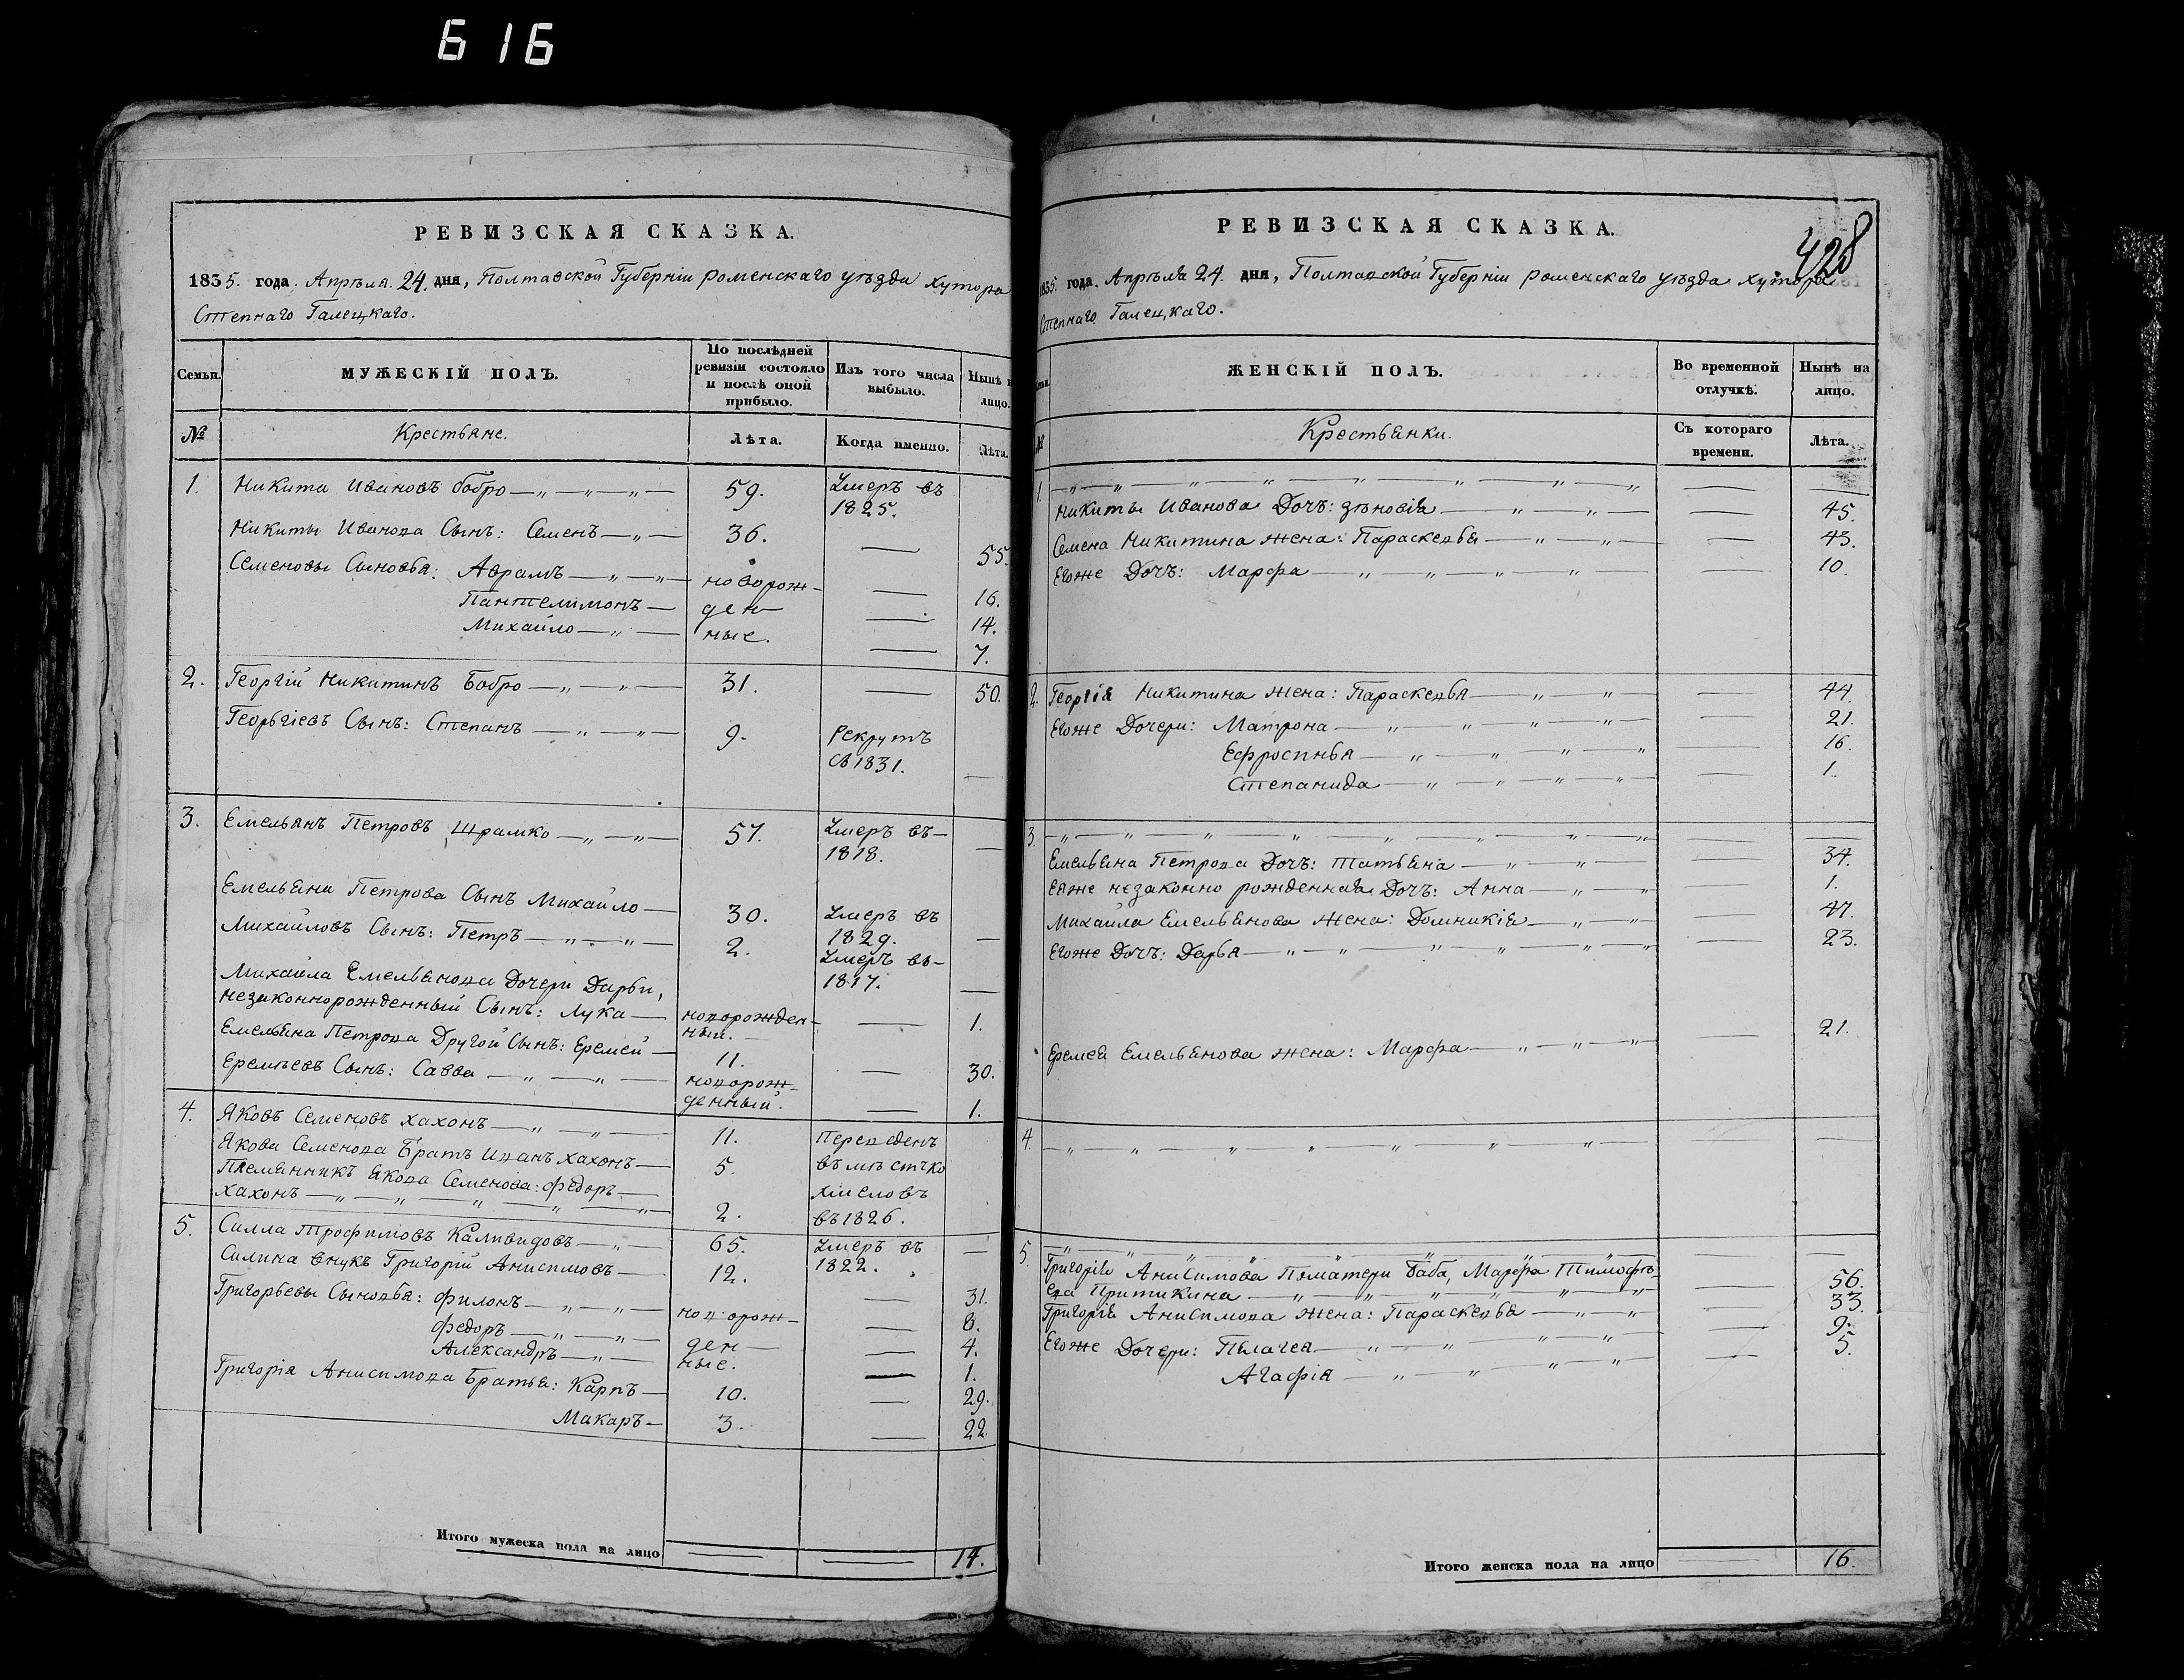 616
РЕВИЗСКАЯ СКАЗКА.
1835. года. Апрѣля. 24. дня, Полтавской Губерніи роменскаго уѣзда хутора
Степнаго Галецкаго.
Семьи.
МУЖЕСКІЙ ПОЛЪ.
По послѣдней
ревизіи состояло
и послѣ оной
прибыло.
Изъ того числа
выбыло.
Нынѣ н
лицо.
№
Крестьяне.
Лѣта.
Когда именно.
Лѣта.
1. Никита Ивановъ бобро — „ — „ — „ — 59. Умеръ въ
1825.
Никиты Иванова Сынъ: Семенъ — „ — 36. — 55.
Семеновы Сыновья: Аврамъ — „ — „ — новорож- — 16.
Пантелимонъ — ден — — 14.
Михайло — „ — ные. — 7.
2. Георгій Никитинъ Бобро — „ — „ — 31. — 50.
Георьгіевъ Сынъ: Степанъ — „ — „ — 9. Рекрутъ
съ 1831. —
3. Емельянъ Петровъ Шрамко — „ — „ — 57. Умеръ въ —
1818. —
Емельяна Петрова Сынъ Михайло — 30. Умеръ въ
1829. —
Михайловъ Сынъ: Петръ — „ — „ — 2. Умеръ въ —
1817. —
Михайла Емельянова Дочери Дарьи,
незаконнорожденный Сынъ: Лука — новорожден- — 1.
ный.
Емельяна Петрова Другой Сынъ: Еремей — 11. — 30.
Еремѣевъ Сынъ: Савва — „ — „ — новорож-
денный. — 1.
4. Яковъ Семеновъ хахонъ — „ — „ — 11. Переведенъ
Якова Семенова Братъ Иванъ хахонъ — 5. въ мѣстѣчко
Племянникъ Якова Семенова: Федоръ — хмеловъ
хахонъ — „ — „ — „ — „ — „ — 2. въ 1826.
5. Силла Трофимовъ Каливидовъ — „ — 65. Умеръ въ —
1822.
Силина внукъ Григорій Анисимовъ — 12. — 31.
Григорьевы Сыновья: Филонъ — „ — „ — новорож- — 8.
Федоръ — „ — „ — ден — — 4.
Александръ — „ — ные. — 1.
Григорія Анисимова Братья: Карпъ — 10. — 29.
Макаръ — 3. — 22.
Итого мужеска пола на лицо — — 14.
РЕВИЗСКАЯ СКАЗКА.
428
1835. года. Апрѣля 24. дня, Полтавской Губерніи роменскаго уѣзда хутора
Степнаго Галецкаго.
ЖЕНСКІЙ ПОЛЪ.
Во временной
отлучкѣ.
Нынѣ на
лицо.
№
Крестьянки.
Съ котораго
времени.
Лѣта.
1. — „ — „ — „ — „ — „ — „ — „ — „ — —
Никиты Иванова Дочъ: зѣновія — „ — „ — — 45.
Семена Никитина жена: Параскевья — „ — „ — — 43.
Егоже Дочъ: Марфа — „ — „ — „ — „ — 10.
2. Георгія Никитина жена: Параскевья — „ — „ — 44.
Егоже Дочери: Матрона — „ — „ — „ — „ — — 21.
Ефросинья — „ — „ — „ — „ — 16.
Степанида — „ — „ — „ — „ — — 1.
3. — „ — „ — „ — „ — „ — „ — „ — „ — —
Емельяна Петрова Дочъ: Татьяна — „ — „ — 34.
Еяже незаконно рожденная Дочъ: Анна — „ — „ — 1.
Михайла Емельянова жена: Домникія — „ — „ — — 47.
Егоже Дочъ: Дарья — „ — „ — „ — „ — „ — „ — 23.
Еремея Емельянова жена: Марфа — „ — „ — „ — 21.
4. — „ — „ — „ — „ — „ — „ — „ — — —
5. — „ — „ — „ — „ — „ — „ — „ — „ — —
Григорія Анисимова Поматери Баба, Марфа Тимофѣ-
ева Притикина — „ — „ — „ — „ — „ — 56.
Григорія Анисимова жена: Параскевья — „ — „ — 33.
Егоже Дочери: Пелагея — „ — „ — „ — „ — 9.
Агафія — „ — „ — „ — „ — 5.
Итого женска пола на лицо — 16.